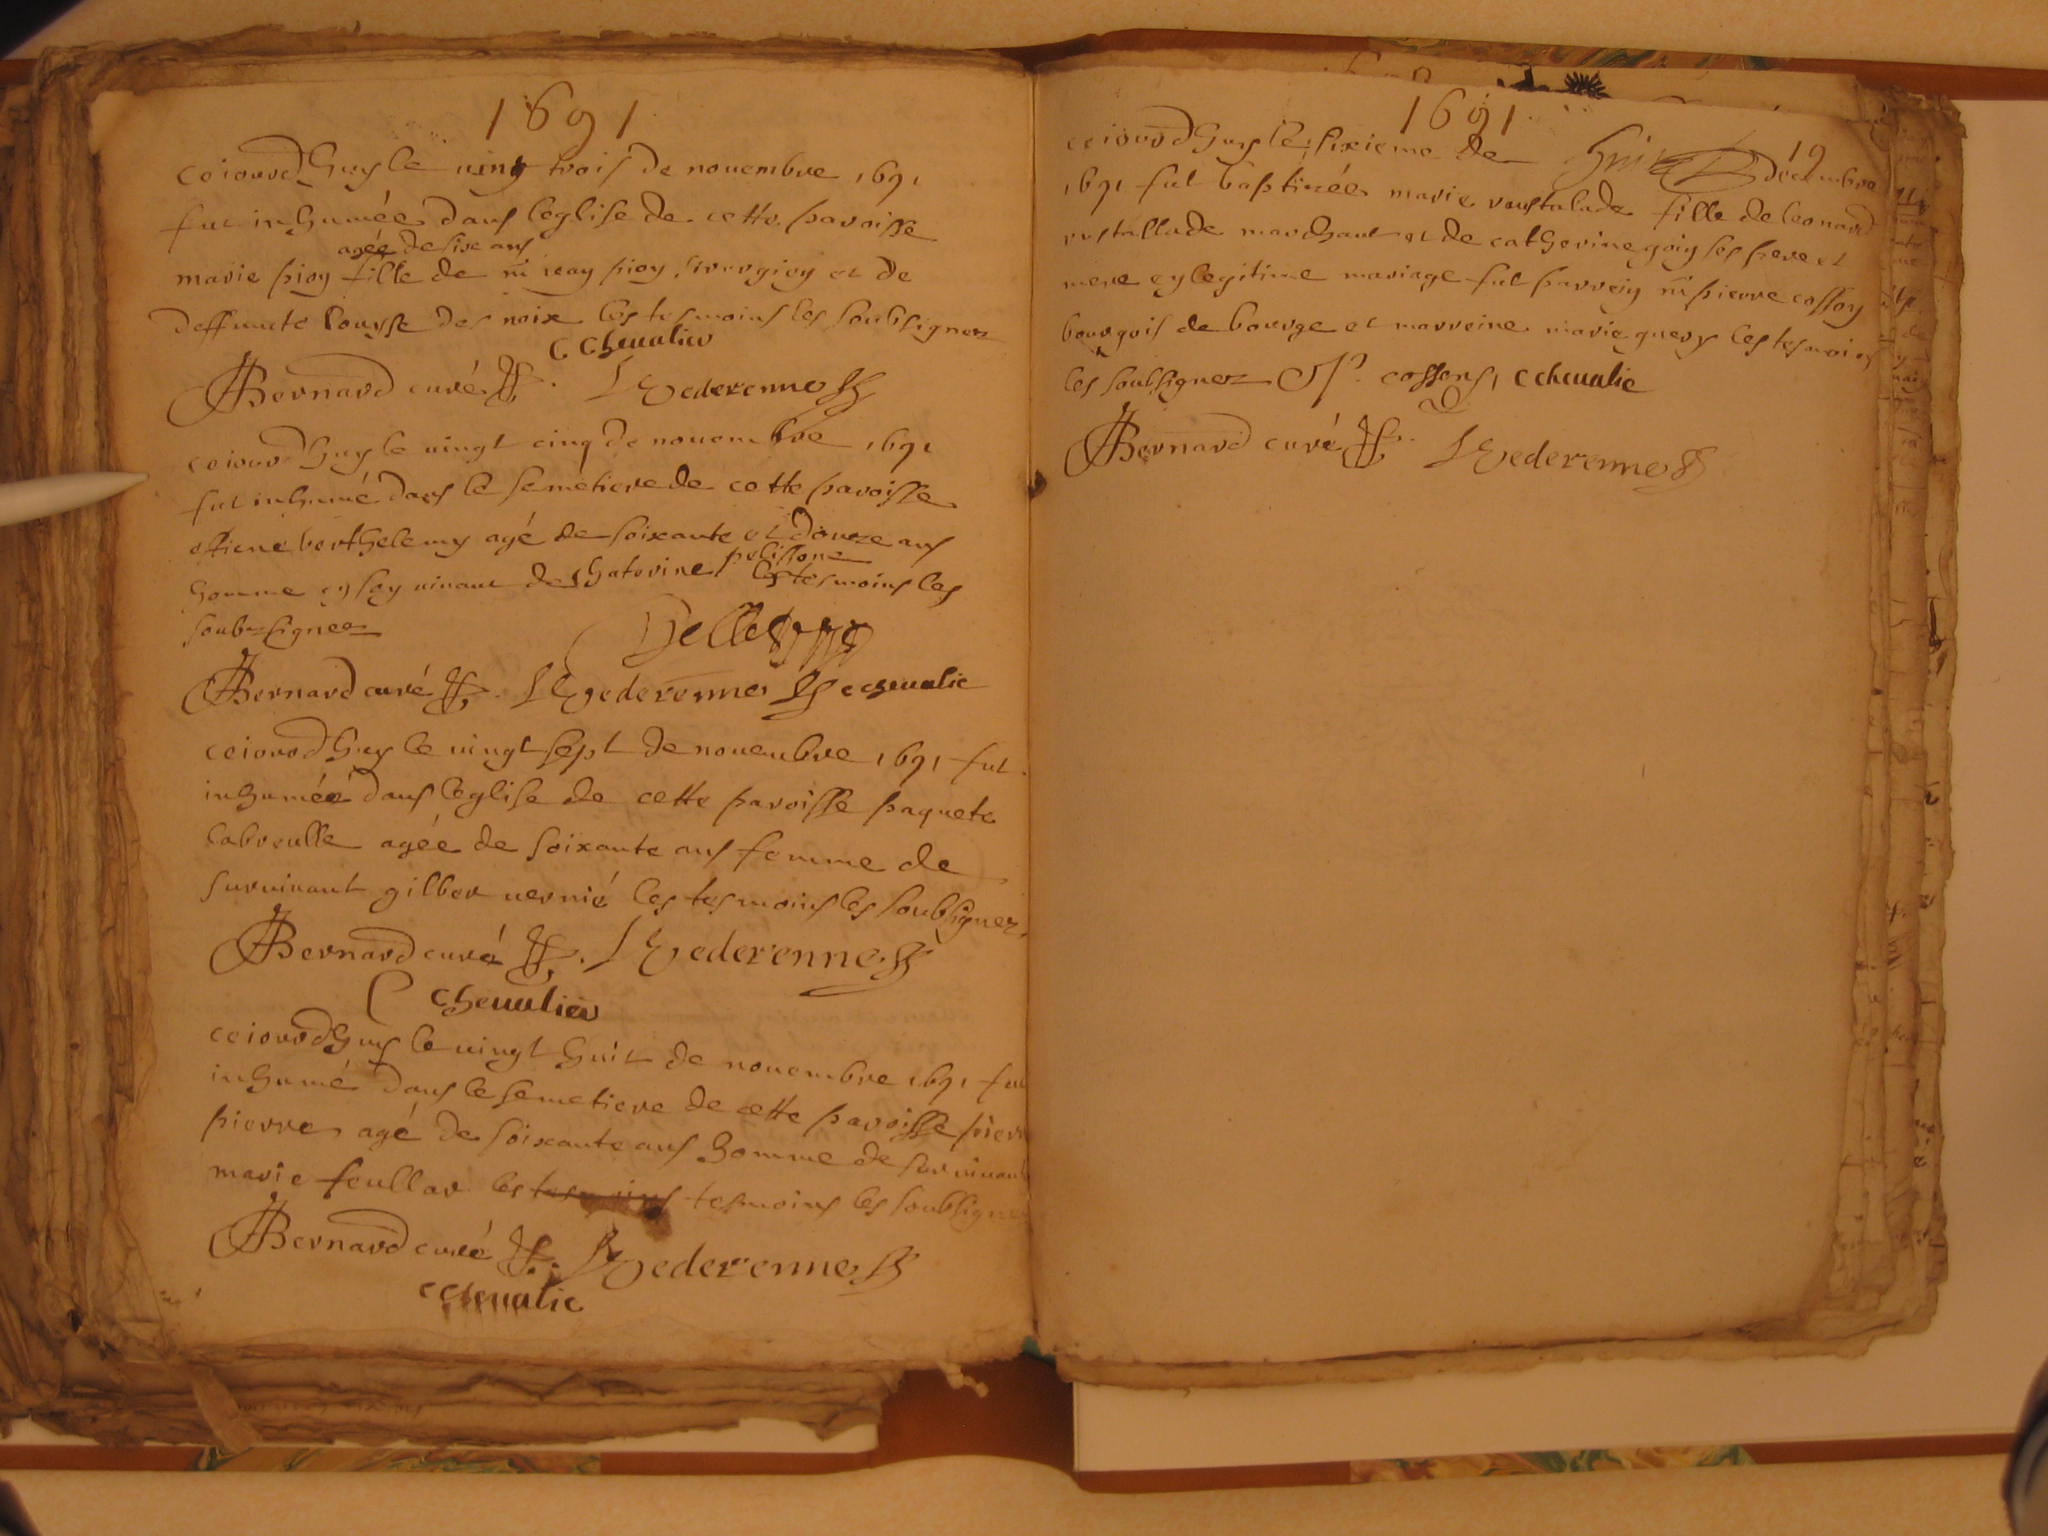 1691
ceiourdhuy le ving trois de nouembre 1691
fut inhumée dans leglise de cette paroisse
agée de six ans
marie pioy fille de m iean pioy et de
deffuncte Louyse des noix les tesmoins les soubsignez
C Cheualier
Bernard curé L Vederenne
ceiourdhuy le uingt cinq de nouembre 1691
fut inhumé dans le semetiere de cette paroisse
estiene berthelemy agé de soixante et douze ans
homme en son uiuant de Chaterine pelissone
les tesmoins les
soubsignez
Bernard curé L Vederenne C cheualie
ceiourdhuy le uingt sept de nouembre 1691 fut
inhumée dans leglise de cette paroisse paquete
labreulle agée de soixante ans femme de
suruiuant gilber uernié les tesmoins les soubsignez
Bernard curé L Vederenne
C cheualier
ceiourdhuy le uingt huit de nouembre 1691 fut
inhumé dans le semetiere de cette paroisse pierre
pierre agé de soixante ans homme de suruiuant
marie feullar les tesmoins tesmoins les soubsignez
Bernard curé L Vederenne
C cheualie
1691
19
ceiourdhuy le sixieme de décembre
1691 fut baptizée marie roustalade fille de leonard
rustallade marchant et de catherine goiy ses pere et
mere en legitime mariage fut parrein m pierre cosson
bourgois de bourge et marreine marie query les tesmoins
les soubsignez P. cosson, C cheualie
Bernard curé L Vederenne